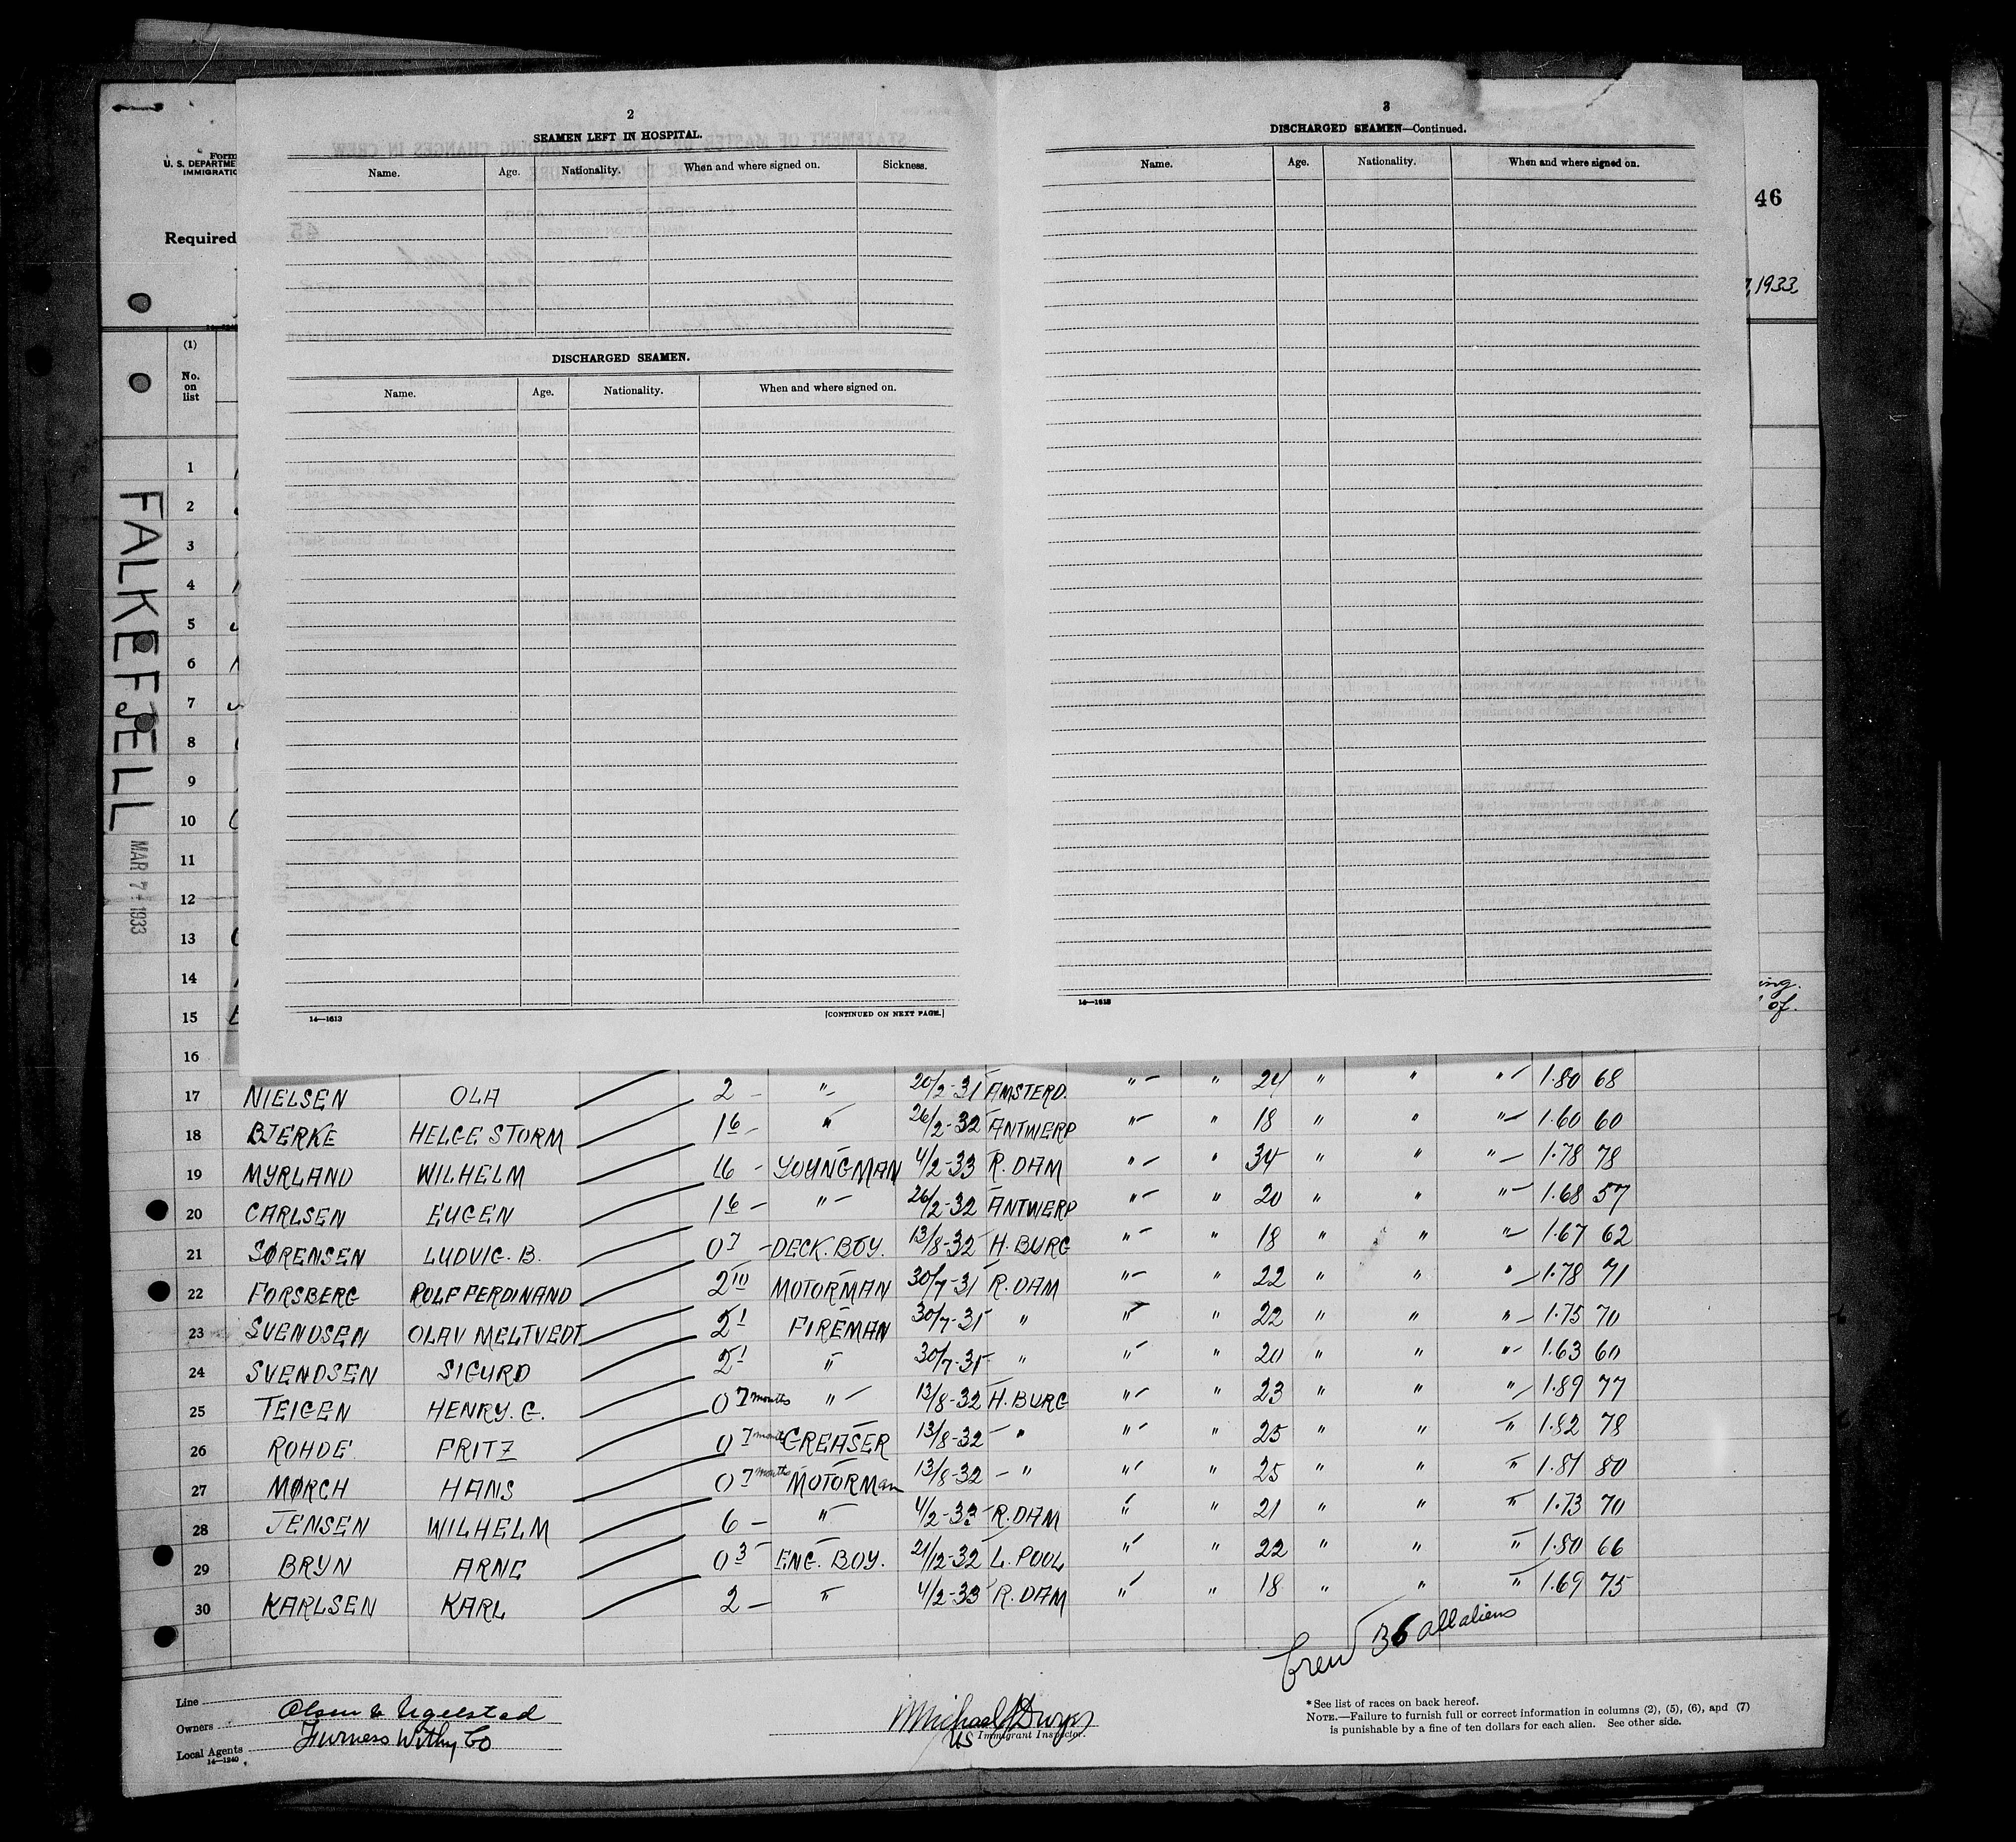 Form
U. S. DEPARTME
IMMIGRATIO
Required
46
, 1933
(1)
No.
on
list
FALKEFJELL
MAR 7 - 1933
2
SEAMEN LEFT IN HOSPITAL.
Name. Age. Nationality. When and where signed on. Sickness.
DISCHARGED SEAMEN.
Name. Age. Nationality. When and where signed on.
14—1613 [CONTINUED ON NEXT PAGE.]
3
DISCHARGED SEAMEN—Continued.
Name. Age. Nationality. When and where signed on.
14—1613
1
2
3
4
5
6
7
8
9
10
11
12
13
14 ing.
15 of.
16
17 NIELSEN OLA 2 – " 20/2-31 AMSTERD. " " 24 " " " 1.80 68
18 BJERKE HELGE STORM 1 6 – " 26/2-32 ANTWERP " " 18 " " " 1.60 60
19 MYRLAND WILHELM 16 – YOUNGMAN 4/2-33 R. DAM " " 34 " " " 1.78 78
20 CARLSEN EUGEN 1 6 – " 26/2-32 ANTWERP " " 20 " " " 1.68 57
21 SØRENSEN LUDVIG. B. 0 7 – DECK. BOY. 13/8-32 H. BURG " " 18 " " " 1.67 62
22 FORSBERG ROLF FERDINAND 2 10 MOTORMAN 30/7-31 R. DAM " " 22 " " " 1.78 71
23 SVENDSEN OLAV MELTVEDT 2 1 FIREMAN 30/7-31 " " " 22 " " " 1.75 70
24 SVENDSEN SIGURD 2 1 " 30/7-31 " " " 20 " " " 1.63 60
25 TEIGEN HENRY. G. 0 7 months " 13/8-32 H. BURG " " 23 " " " 1.89 77
26 ROHDE FRITZ 0 7 month GREASER 13/8-32 – " " " 25 " " " 1.82 78
27 MØRCH HANS 0 7 months MOTORMan 13/8-32 – " " " 25 " " " 1.81 80
28 JENSEN WILHELM 6 – " 4/2-33 R. DAM " " 21 " " " 1.73 70
29 BRYN ARNE 0 3 ENG. BOY. 21/12-32 L. POOL " " 22 " " " 1.80 66
30 KARLSEN KARL 2 – " 4/2-33 R. DAM " " 18 " " " 1.69 75
Crew 36 all aliens
Line
Owners Olsen & Ugelstad
Local Agents Furness Withy Co
14—1240
Michael J Dwyer
US Immigrant Inspector.
* See list of races on back hereof.
NOTE.—Failure to furnish full or correct information in columns (2), (5), (6), and (7)
is punishable by a fine of ten dollars for each alien. See other side.